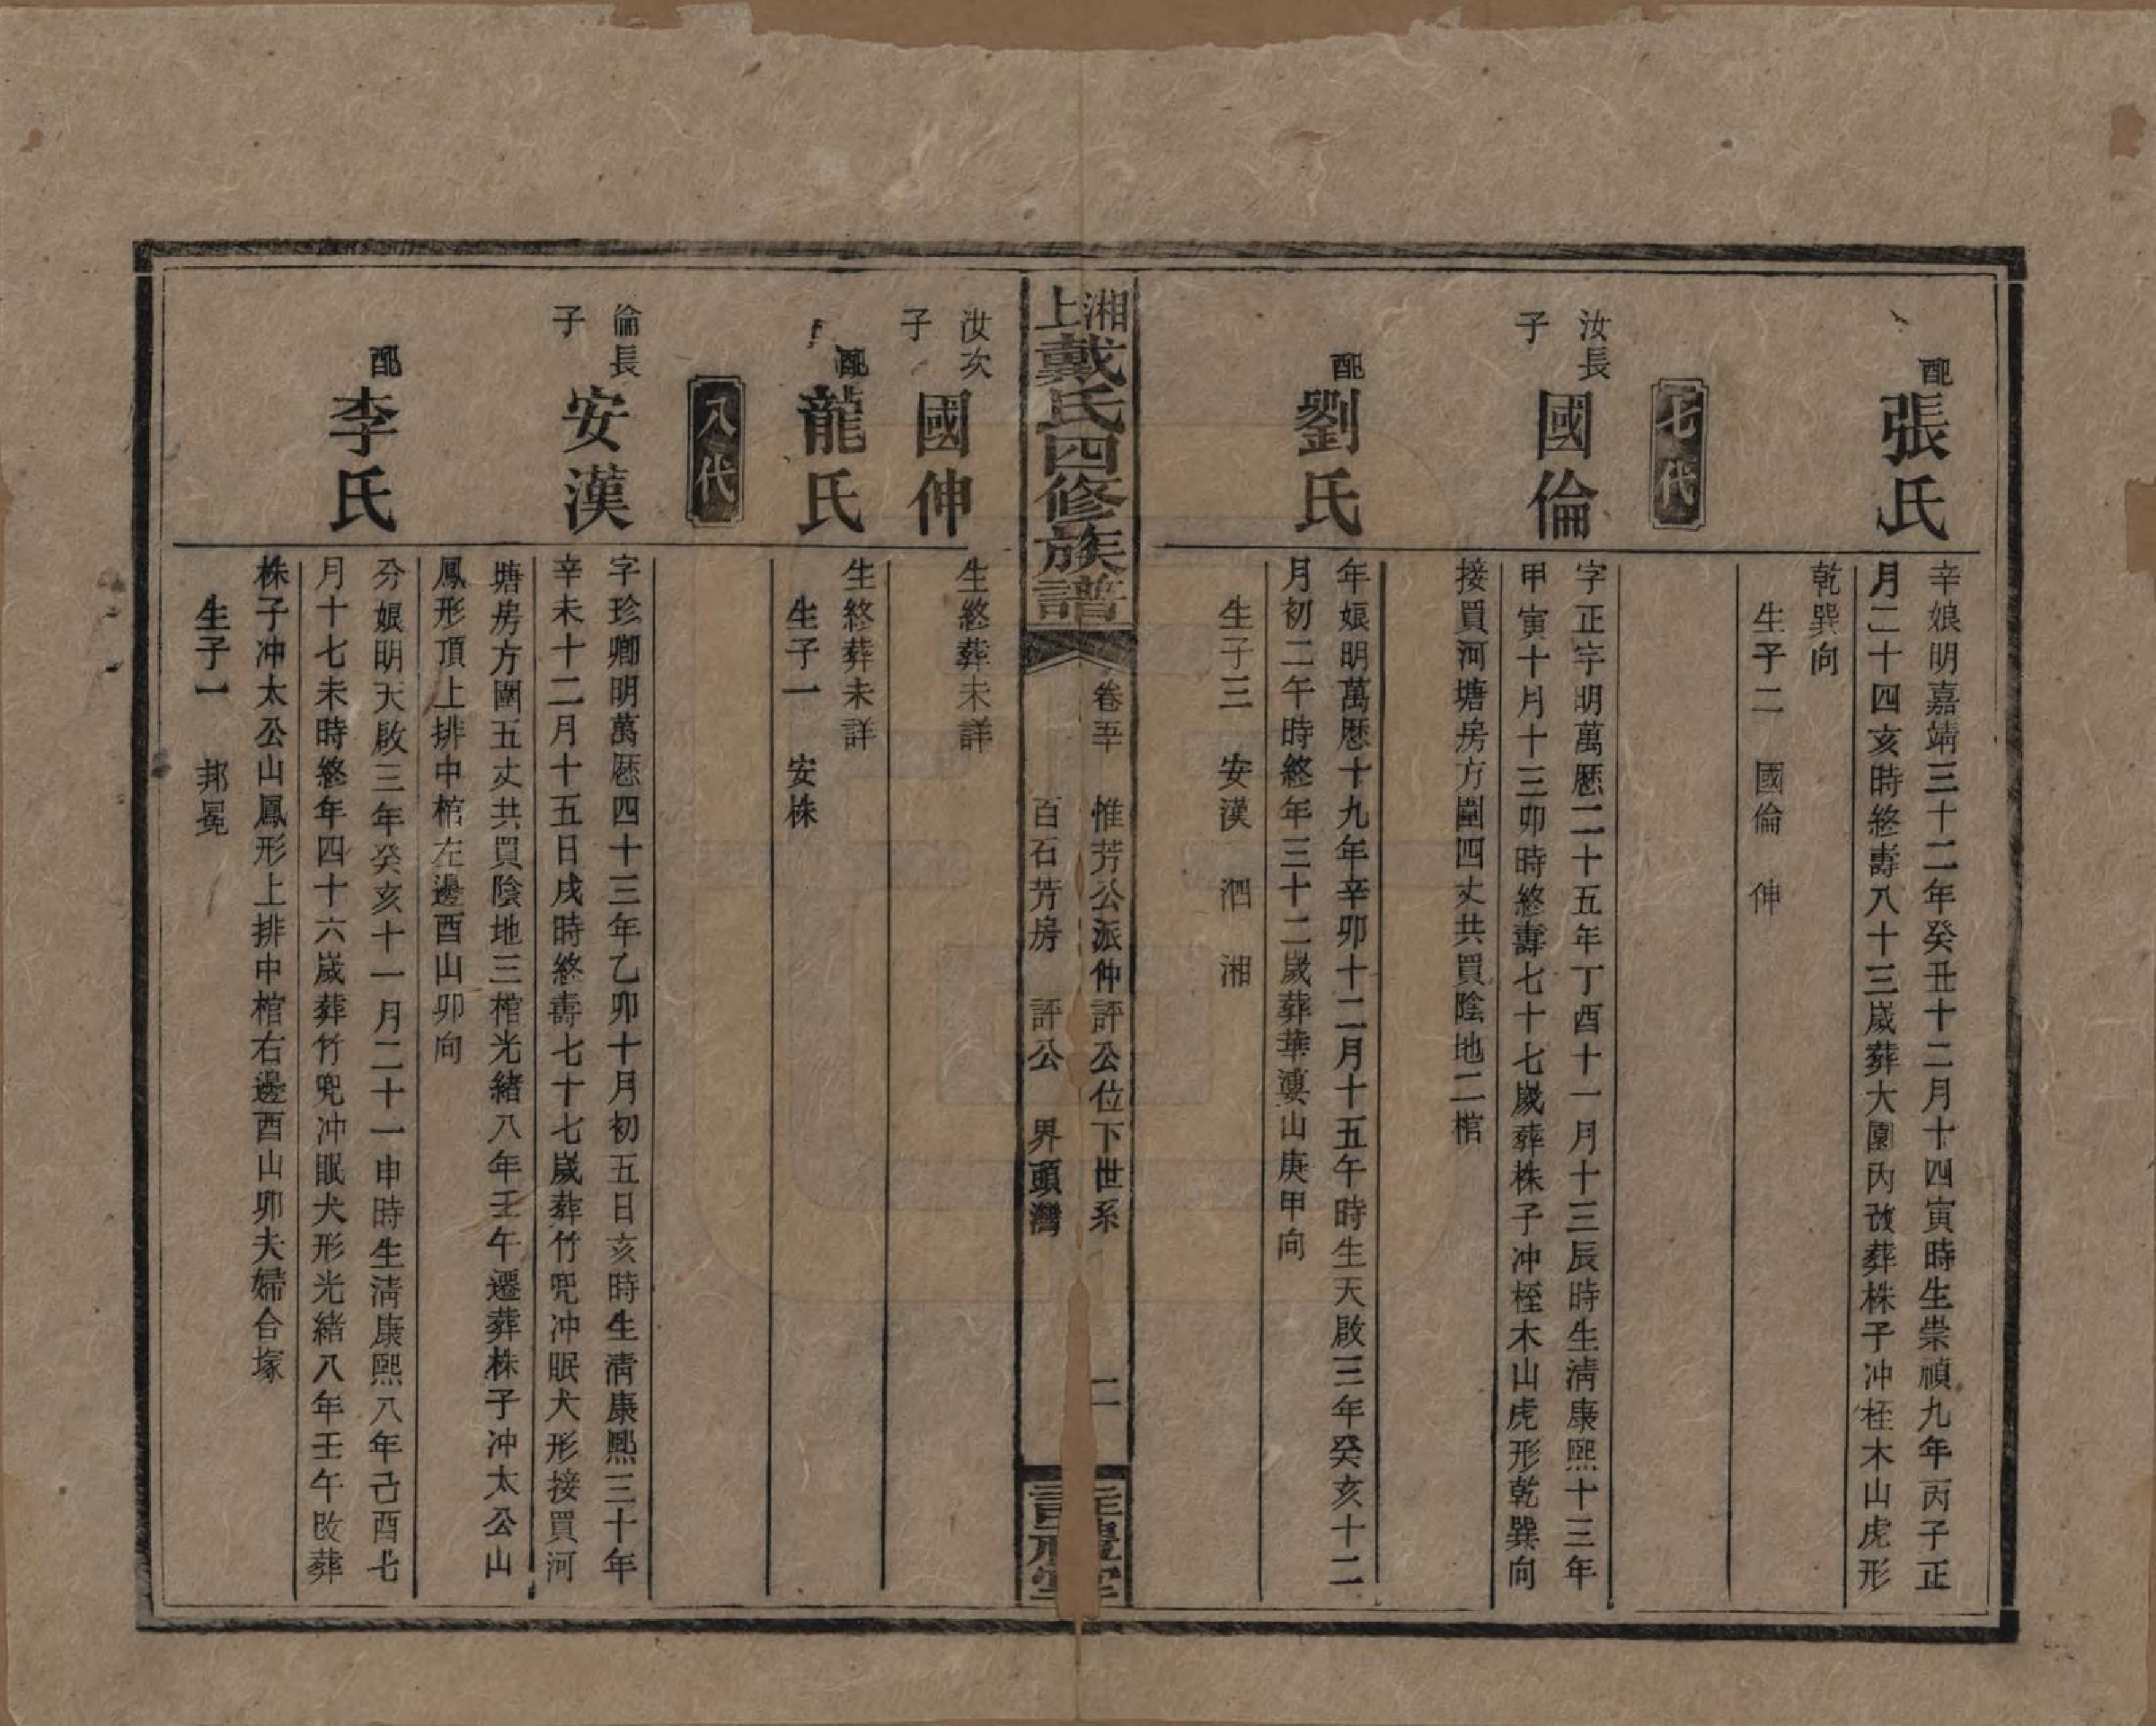 配
張氏
辛娘明嘉靖三十二年癸丑十二月十四寅時生崇禎九年丙子正
月二十四亥時終壽八十三歲葬大園內改葬株子冲桎木山虎形
乾巽向
生子二 國倫 伸
七代
汝長
子
國倫
字正宇明萬歷二十五年丁酉十一月十三辰時生清康熙十三年
甲寅十月十三卯時終壽七十七歲葬株子冲桎木山虎形乾巽向
接買河塘房方圍四丈共買陰地二棺
配
劉氏
年娘明萬歷十九年辛卯十二月十五午時生天啟三年癸亥十二
月初二午時終年三十二歲葬華山庚甲向
生子三 安漢 泗 湘
湘上戴氏四修族譜
卷五
惟芳公派仲評公位下世系
百石芳房 評公 界頭灣
二
禮堂
汝次
子
國伸
生終葬未詳
配
龍氏
生終葬未詳
生子一 安株
八代
倫長
子
安漢
字珍卿明萬歷四十三年乙卯十月初五日亥時生清康熙三十年
辛未十二月十五日戌時終壽七十七歲葬竹兜冲眠犬形接買河
塘房方圍五丈共買陰地三棺光緒八年壬午遷葬株子冲太公山
鳳形頂上排中棺左邊酉山卯向
配
李氏
分娘明天啟三年癸亥十一月二十一申時生清康熙八年己酉七
月十七未時終年四十六歲葬竹兜冲眠犬形光緒八年壬午改葬
株子冲太公山鳳形上排中棺右邊酉山卯夫婦合塚
生子一 邦冕